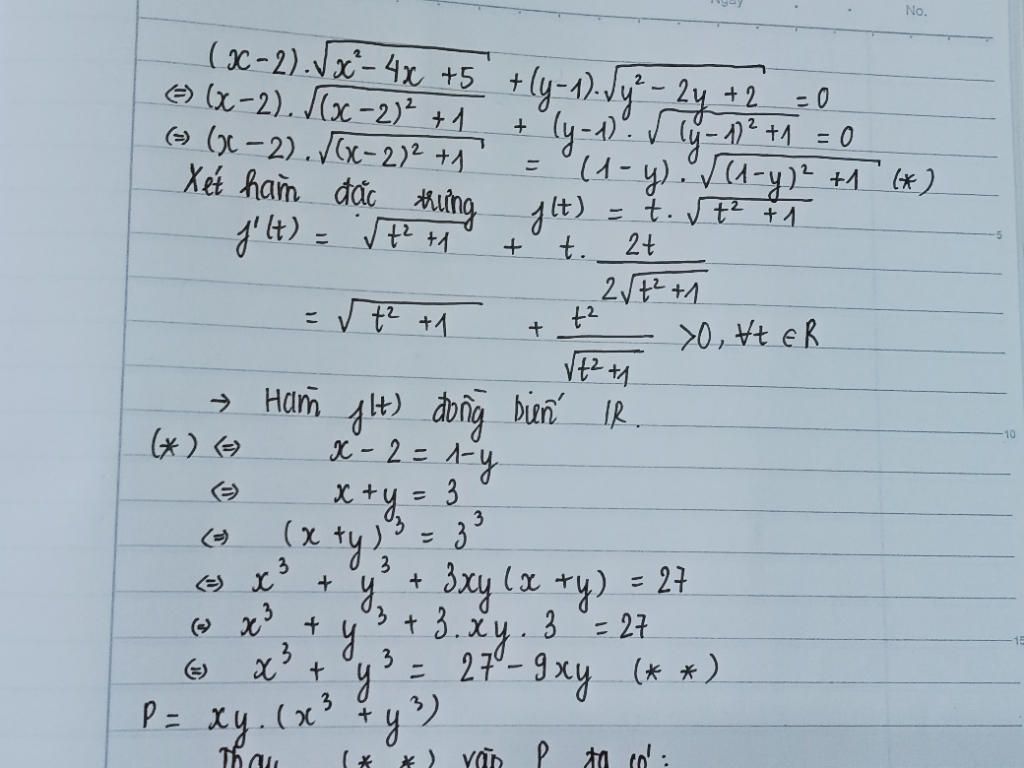 Ngày
No.
(x-2).√(x²-4x+5) + (y-1).√(y²-2y+2) = 0
⇔ (x-2).√((x-2)²+1) + (y-1).√((y-1)²+1) = 0
⇔ (x-2).√((x-2)²+1) = (1-y).√((1-y)²+1) (*)
Xét hàm đặc trưng f(t) = t.√(t²+1)
f'(t) = √(t²+1) + t. 2t/(2√(t²+1))
= √(t²+1) + t²/√(t²+1) >0, ∀t ∈ R
5
→ Hàm f(t) đồng biến R.
10
(*) ⇔ x-2 = 1-y
⇔ x+y = 3
⇔ (x+y)³ = 3³
⇔ x³ + y³ + 3xy(x+y) = 27
⇔ x³ + y³ + 3.xy.3 = 27
15
⇔ x³ + y³ = 27-9xy (* *)
P = xy.(x³ + y³)
Thay (* *) vào P ta có: